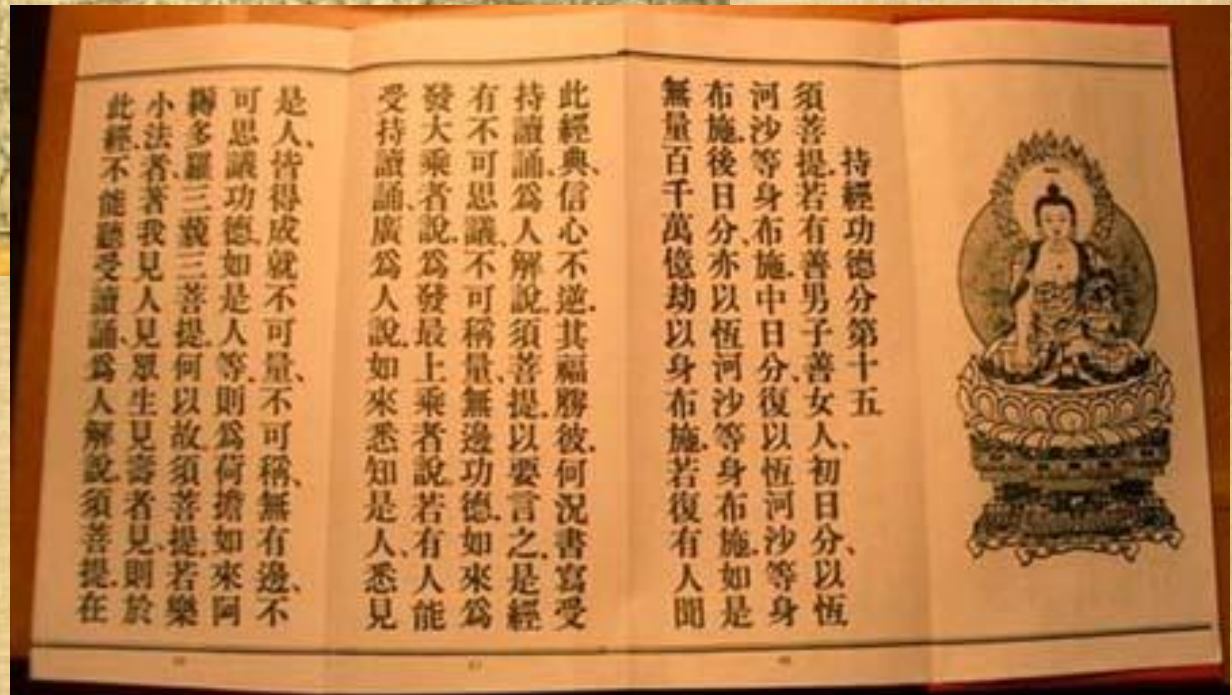 持經功德分第十五
須菩提.若有善男子善女人、初日分、以恆
河沙等身布施.中日分、復以恆河沙等身
布施.後日分、亦以恆河沙等身布施.如是
無量百千萬億劫以身布施.若復有人聞
此經典、信心不逆.其福勝彼.何況書寫受
持讀誦、爲人解說.須菩提.以要言之.是經
有不可思議、不可稱量、無邊功德.如來爲
發大乘者說.爲發最上乘者說.若有人能
受持讀誦、廣爲人說.如來悉知是人、悉見
是人、皆得成就不可量、不可稱、無有邊、不
可思議功德.如是人等、則爲荷擔如來阿
耨多羅三藐三菩提.何以故.須菩提.若樂
小法者、著我見人見眾生見壽者見、則於
此經、不能聽受讀誦、爲人解說.須菩提.在